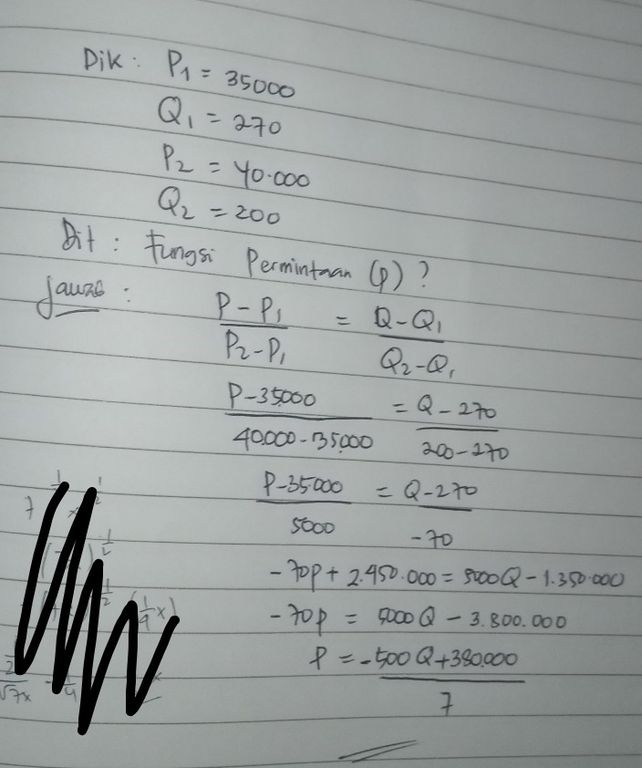 Dik : P1 = 35000
Q1 = 270
P2 = 40.000
Q2 = 200
Dit : Fungsi Permintaan (p) ?
Jawab :
P - P1 / P2 - P1 = Q - Q1 / Q2 - Q1
P - 35000 / 40.000 - 35.000 = Q - 270 / 200 - 270
P - 35000 / 5000 = Q - 270 / -70
- 70p + 2.450.000 = 5000Q - 1.350.000
- 70p = 5000Q - 3.800.000
P = -500Q + 380.000 / 7